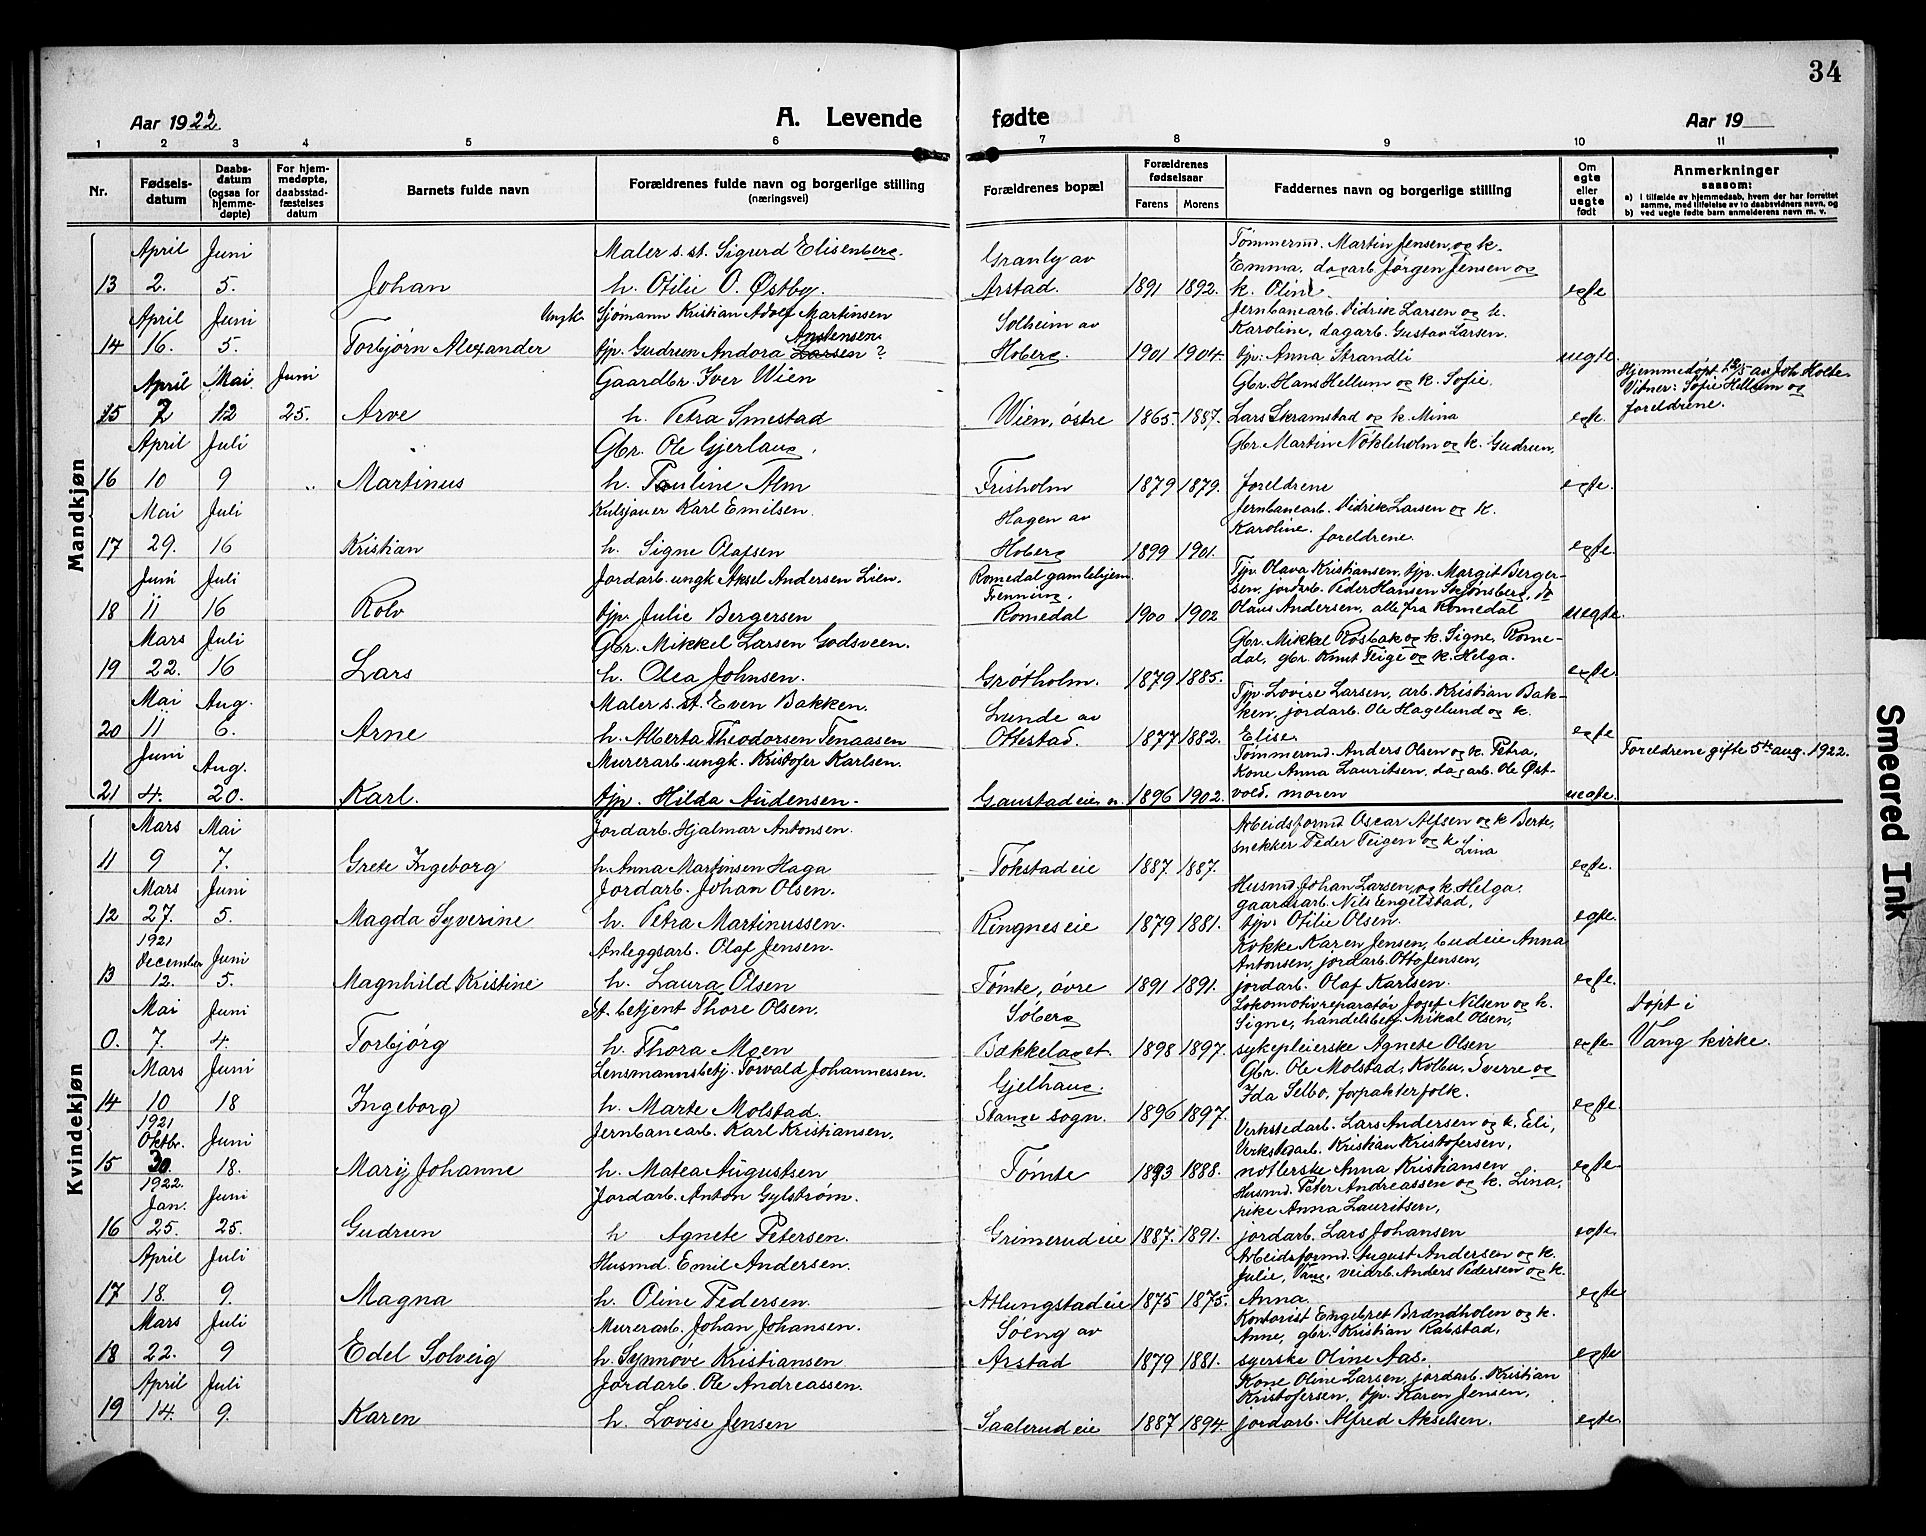 34
Aar 1922.
A. Levende fødte
Aar 19
1 2 3 4 5 6 7 8 9 10 11
Nr.
Fødsels-datum
Daabs-datum (ogsaa for hjemme-døpte)
For hjem-medøpte, daabsstad-fæstelses datum
Barnets fulde navn
Forældrenes fulde navn og borgerlige stilling (næringsvei)
Forældrenes bopæl
Forældrenes fødselsaar
Farens Morens
Faddernes navn og borgerlige stilling
Om egte eller uegte født
Anmerkninger saasom:
a) i tilfælde av hjemmedaab, hvem der har forrettet samme, med tilføielse av to daabsvidners navn, og
b) ved uegte fødte barn anmelderens navn m. v.
Mandkjøn
April Juni Maler s. st. Sigurd Elisenberg. Granly av Tømmermd. Martin Jensen, og k. Emma, dagarb. Jørgen Jensen og
13 2. 5. Johan h. Otilie O. Østby. Arstad. 1891 1892. k. Oline. egte
April Juni Ungk. Sjømann Kristian Adolf Martinsen Solheim av Jernbanearb. Didrik Larsen og k. Karoline, dagarb. Gustav Larsen.
14 16. 5. Torbjørn Alexander tjp. Gudrun Andora Larsen ? Anstensen Hoberg. 1901 1904. tjp. Anna Strandli uegte.
April Mai Juni Gaardbr. Iver Wien Gbr. Hans Hellum og k. Sofie. Hjemmedøpt 12/5 av Joh. Holte. Vitner: Sofie Hellum og foreldrene.
15 7 12 25. Arve h. Petra Smestad Wien, østre 1865. 1887. Lars Skramstad og k. Mina egte.
April Juli Gbr. Ole Gjerlaug. Gbr. Martin Nøkleholm og k. Gudrun,
16 10 9 Martinus h. Pauline Alm Frisholm 1879 1879. foreldrene egte.
Mai Juli Kulsjauer Karl Emilsen. Hagen av Jernbanearb. Didrik Larsen og k. Karoline. foreldrene.
17 29. 16 Kristian h. Signe Olafsen Hoberg 1899 1901. egte.
Juni Juli Jordarb. ungk Aksel Andersen Lien. Romedal gamlehjem. Frenning, Tjp. Olava Kristiansen, tjp. Margit Berger-sen, jordarb. Peder Hansen Skjønsberg, do
18 11 16 Rolv tjp. Julie Bergersen Romedal 1900 1902 Olaus Andersen, alle fra Romedal uegte.
Mars Juli Gbr. Mikkel Larsen Godsveen. Gbr. Mikkel Rosbak og k. Signe, Rome-dal, gbr. Knut Teige og k. Helga.
19 22. 16 Lars h. Olea Johnsen. Grøtholm. 1879 1885. egte
Mai Aug. Maler s. st. Even Bakken. Lunde av Tjp. Lovise Larsen, arb. Kristian Bak-ken, jordarb. Ole Hagelund og k.
20 11 6. Arne h. Alberta Theodorsen Tenaasen Ottestad. 1877 1882. Elise. egte
Juni Aug. Murerarb. ungk. Kristofer Karlsen. Tømmermd. Anders Olsen og k. Petra, Kone Anna Lauritsen, dagarb. Ole Øst- Foreldrene gifte 5te aug. 1922.
21 4. 20. Karl. tjp. Hilda Audensen. Gaustadeie n. 1896 1902. vold. moren uegte.
Kvindekjøn
Mars Mai Jordarb. Hjalmar Antonsen. Arbeidsformd. Oscar Alfsen og k Berte, snekker Peder Teigen og k. Lina
11 9 7. Grete Ingeborg h. Anna Martinsen Haga Tokstadeie 1887. 1887. egte.
Mars Juni Jordarb. Johan Olsen. Husmd. Johan Larsen, og k. Helga. gaardsarb. Nils Engelstad,
12 27. 5. Magda Syverine h. Petra Martinussen. Ringneseie 1879 1881. tjp. Otilie Olsen. egte.
1921 December Juni Anleggsarb. Olaf Jensen. Kokke Karen Jensen, budeie Anna Antonsen, jordarb. Otto Jensen,
13 12. 5. Magnhild Kristine h. Laura Olsen Tømte, øvre 1891 1891. jordarb. Olaf Karlsen. egte.
Mai Juni St. betjent Thore Olsen. Søberg Lokomotivreparatør Josef Nilsen og k. Signe, handelsbetj. Mikal Olsen, Døpt i
0. 7. 4. Torbjørg h. Thora Moen Bækkelaget. 1898 1897. sykepleierske Agnete Olsen egte Vang kirke.
Mars Juni Lensmannsbetj. Torvald Johannessen. Gjelhaug. Gbr. Ole Molstad, Kolbu, Sverre og Ida Selbo, forpakterfolk.
14 10 18 Ingeborg h. Marte Molstad. Stange sogn. 1896 1897. egte.
1921 Oktbr. Juni Jernbanearb. Karl Kristiansen. Verkstedarb. Lars Andersen og k. Eli, Verkstedarb. Kristian Kristofersen,
15 30. 18. Mary Johanne h. Matea Augustsen Tømte 1893 1888. Anna Kristiansen egte
1922. Jan. Juni Jordarb. Anton Gylstrøm. Husmd. Peter Andreassen og k. Lina, pike Anna Lauritsen,
16 25. 25. Gudrun h Agnete Petersen. Grimerudeie 1887. 1891. jordarb. Lars Johansen egte
April Juli Husmd. Emil Andersen. Arbeidsformd. August Andersen og k. Julie, Vang, veiarb. Anders Pedersen og k.
17 18. 9. Magna h. Oline Pedersen. Atlungstadeie 1875 1875. Anna. egte
Mars Juli Murerarb. Johan Johansen. Søeng av Kontorist Engebret Brændholen og k. Anne, gbr. Kristian Rabstad,
18 22. 9 Edel Solveig h. Synnøve Kristiansen Arstad 1879 1881. syerske Oline Aas. egte
April Juli Jordarb. Ole Andreassen. Kone Oline Larsen, jordarb. Kristian Kristofersen, tjp. Karen Jensen,
19 14. 9. Karen h. Lovise Jensen Saalerudeie 1887 1894. jordarb. Alfred Akselsen. egte.
Smeared Ink